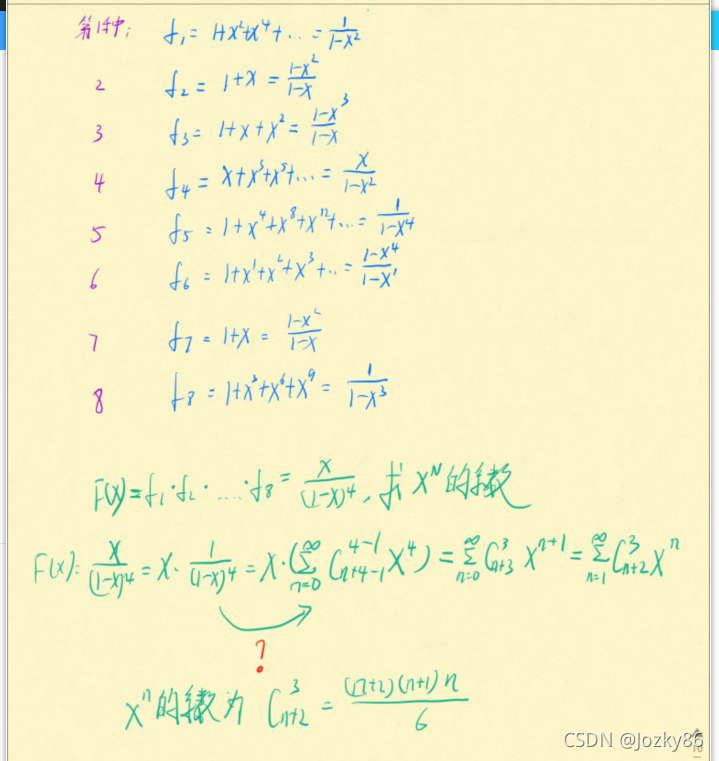 第1种: f₁ = 1+x²+x⁴+... = 1/(1-x²)
2 f₂ = 1+x = (1-x²)/(1-x)
3 f₃ = 1+x+x² = (1-x³)/(1-x)
4 f₄ = x+x³+x⁵+... = x/(1-x²)
5 f₅ = 1+x⁴+x⁸+xⁿ+... = 1/(1-x⁴)
6 f₆ = 1+x¹+x²+x³+.. = (1-x⁴)/(1-x¹)
7 f₇ = 1+x = (1-x²)/(1-x)
8 f₈ = 1+x³+x⁶+x⁹ = 1/(1-x³)
F(x)=f₁·f₂·....·f₈ = x/(1-x)⁴, 求 x^N 的系数
F(x): x/(1-x)⁴ = x·1/(1-x)⁴ = x·(∑_{n=0}^{∞} C_{n+4-1}^{4-1} x⁴) = ∑_{n=0}^{∞} C_{n+3}^{3} x^{n+1} = ∑_{n=1}^{∞} C_{n+2}^{3} xⁿ
?
xⁿ的系数为 C_{n+2}^{3} = (n+2)(n+1)n/6
CSDN @Jozky86